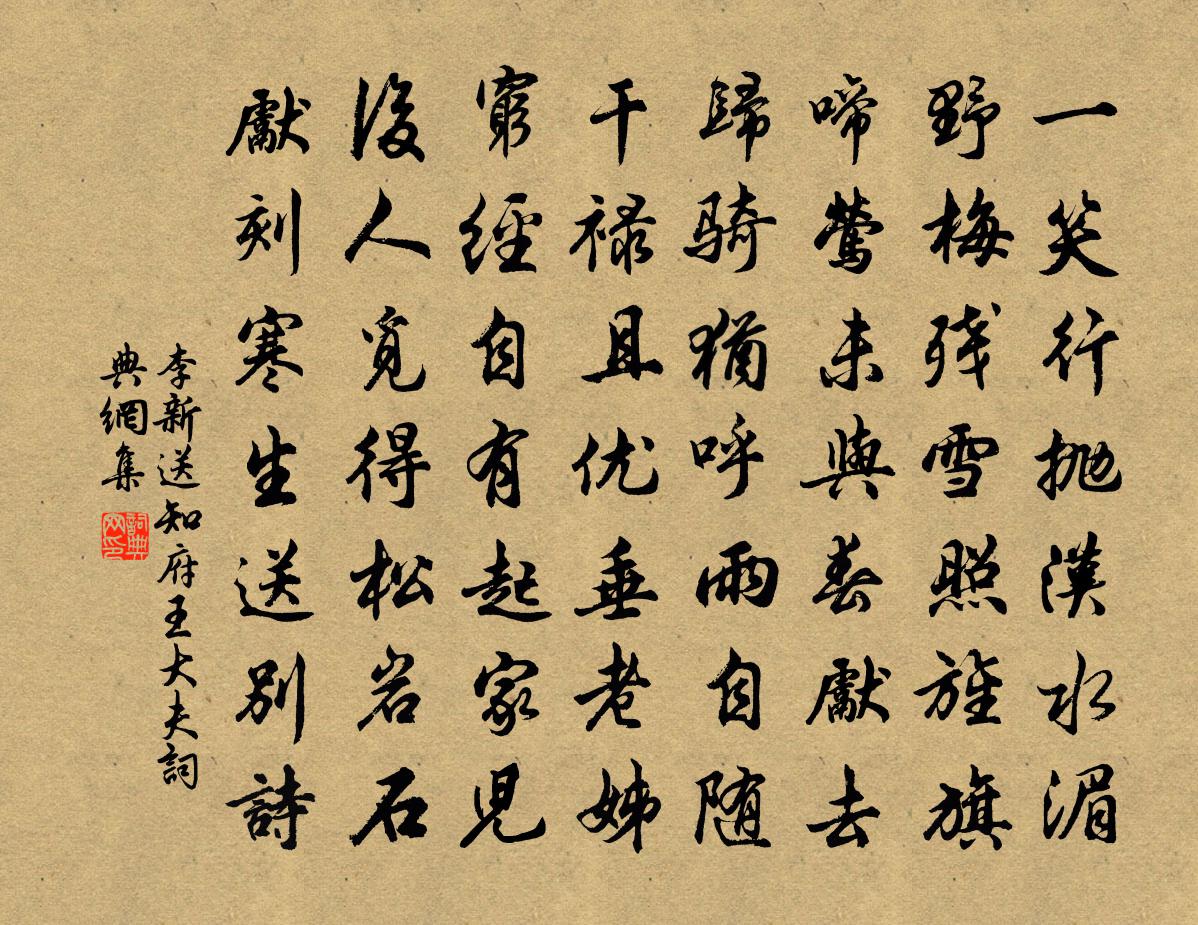 一笑行抛漢水湄
野梅残雪照旌旗
啼鶯未與春獻去
歸騎猶呼雨自随
干禄且优垂老姊
窮經自有起家児
後人覓得松岩石
獻刻寒生送別詩
李新送知府王大夫詞
典網集
詞典
网印